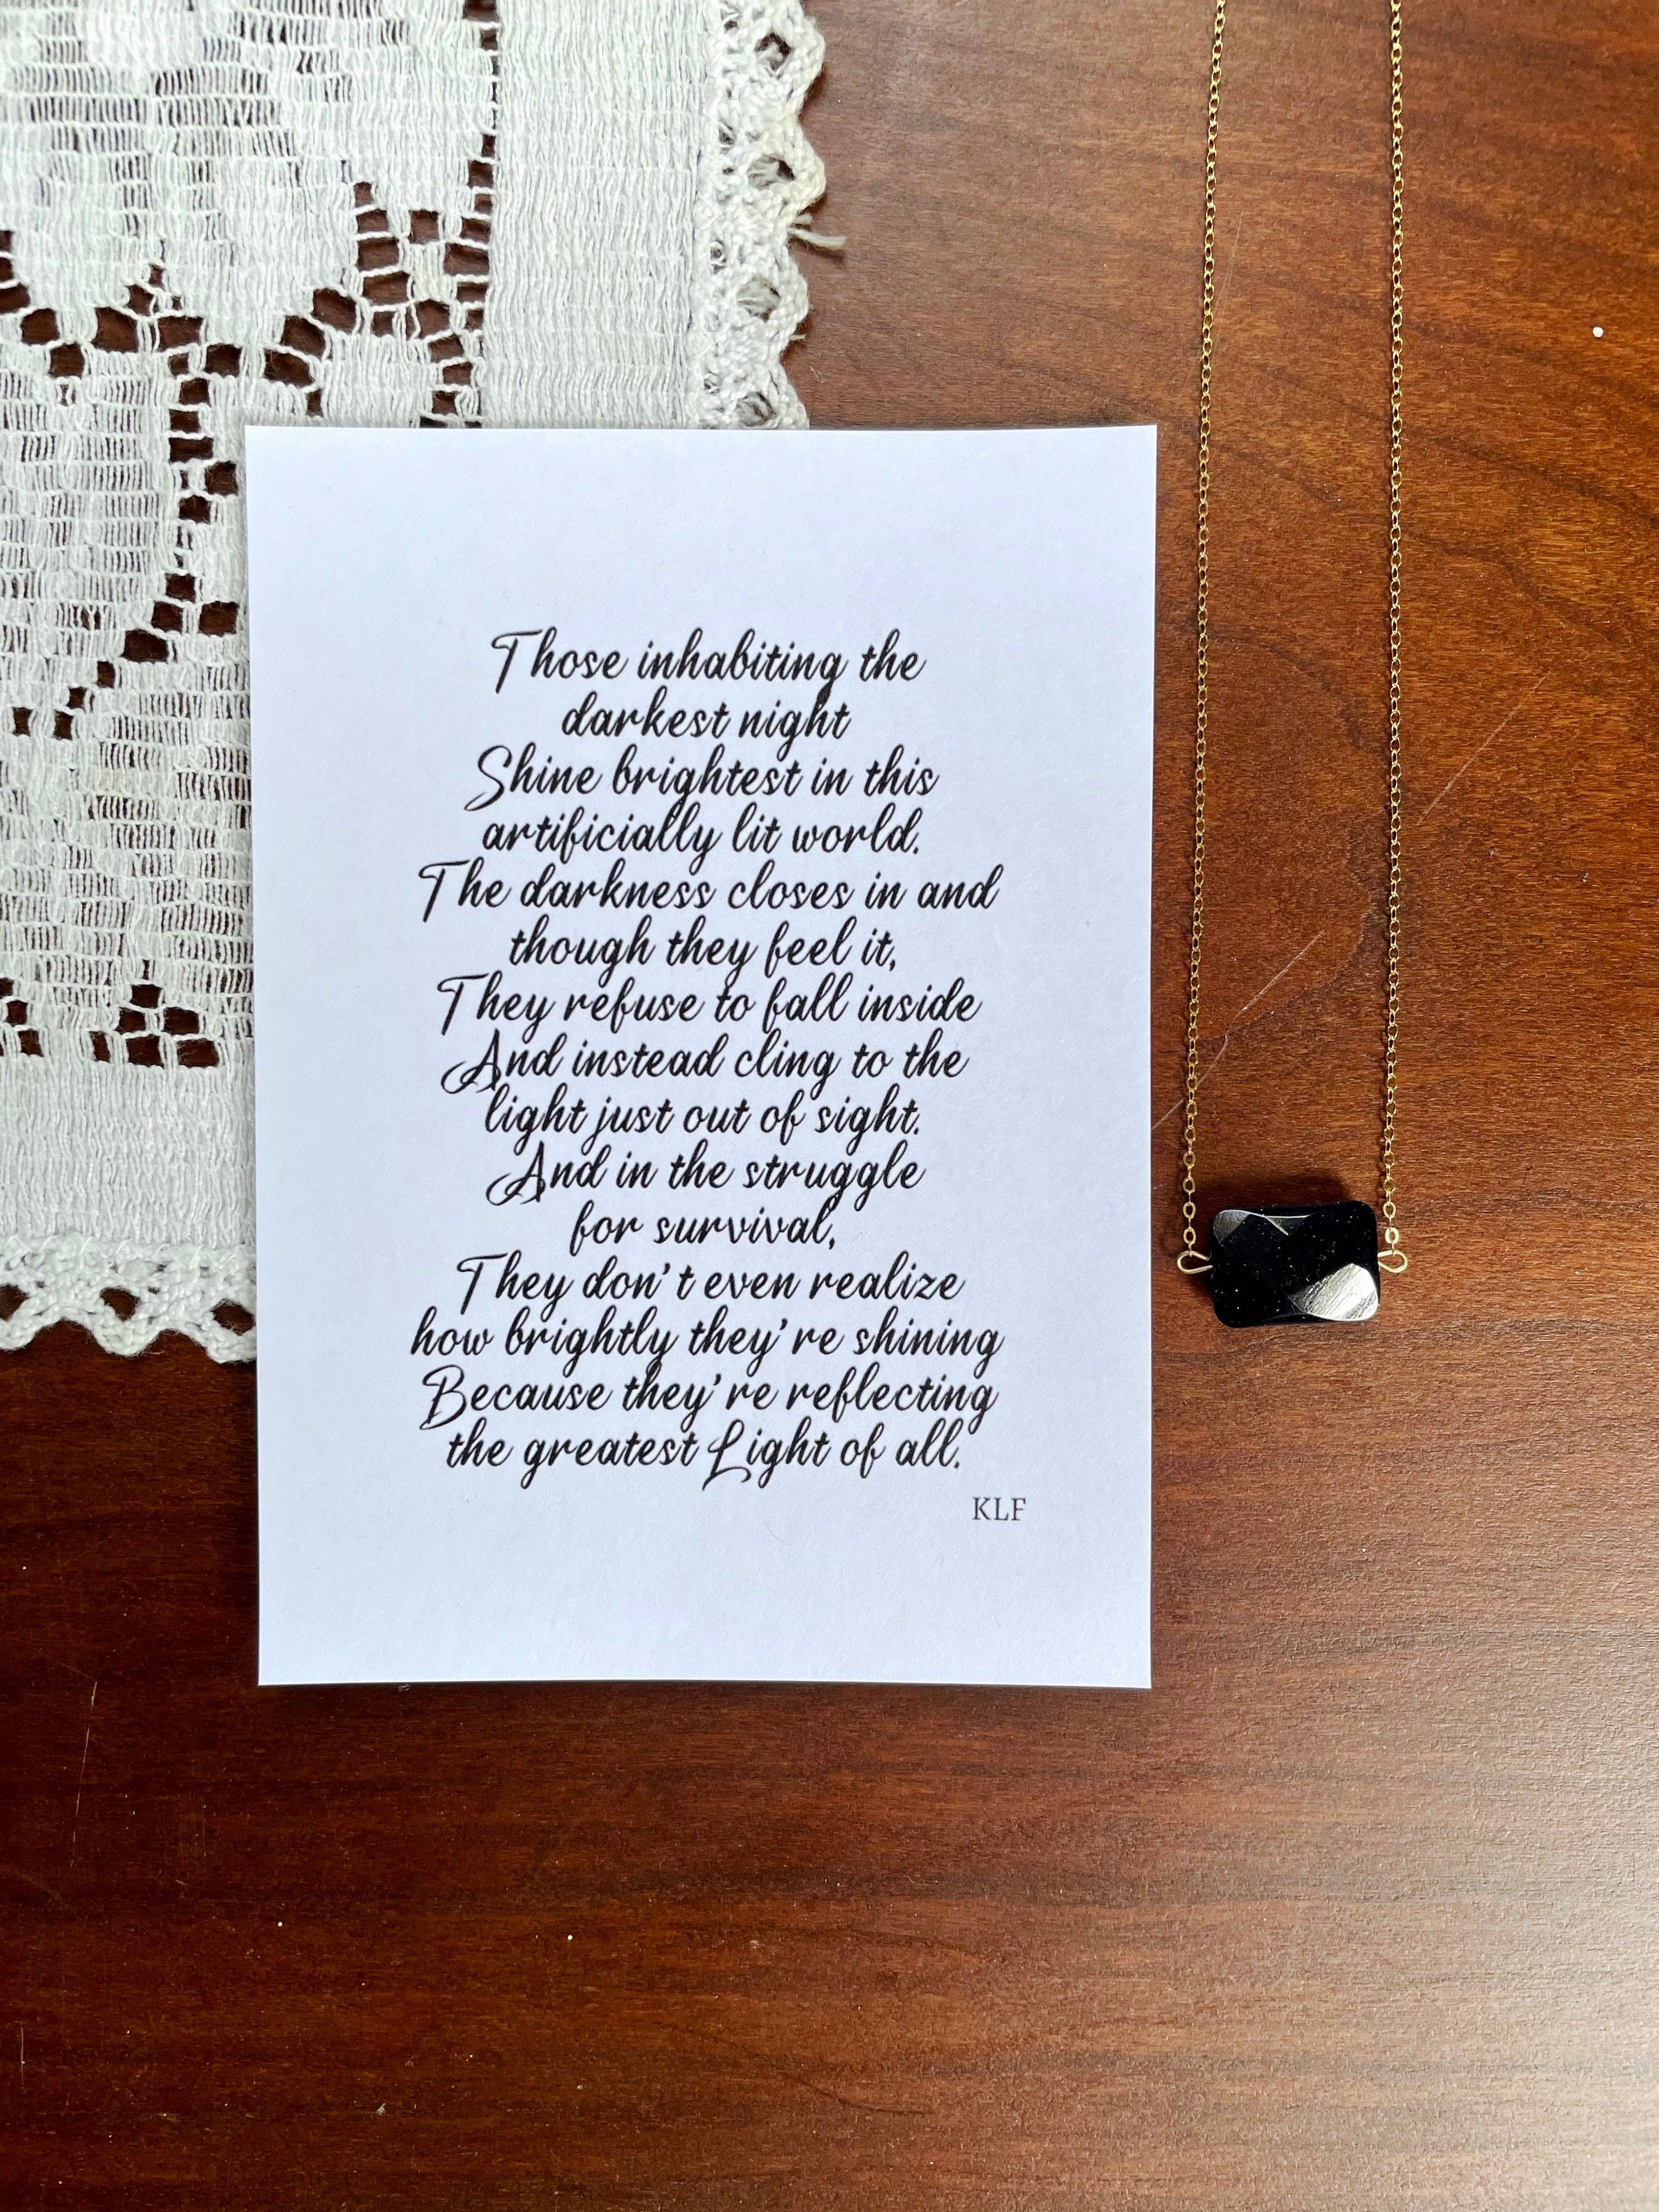 Those inhabiting the
darkest night
Shine brightest in this
artificially lit world.
The darkness closes in and
though they feel it,
They refuse to fall inside
And instead cling to the
light just out of sight.
And in the struggle
for survival,
They don't even realize
how brightly they're shining
Because they're reflecting
the greatest Light of all.
KLF